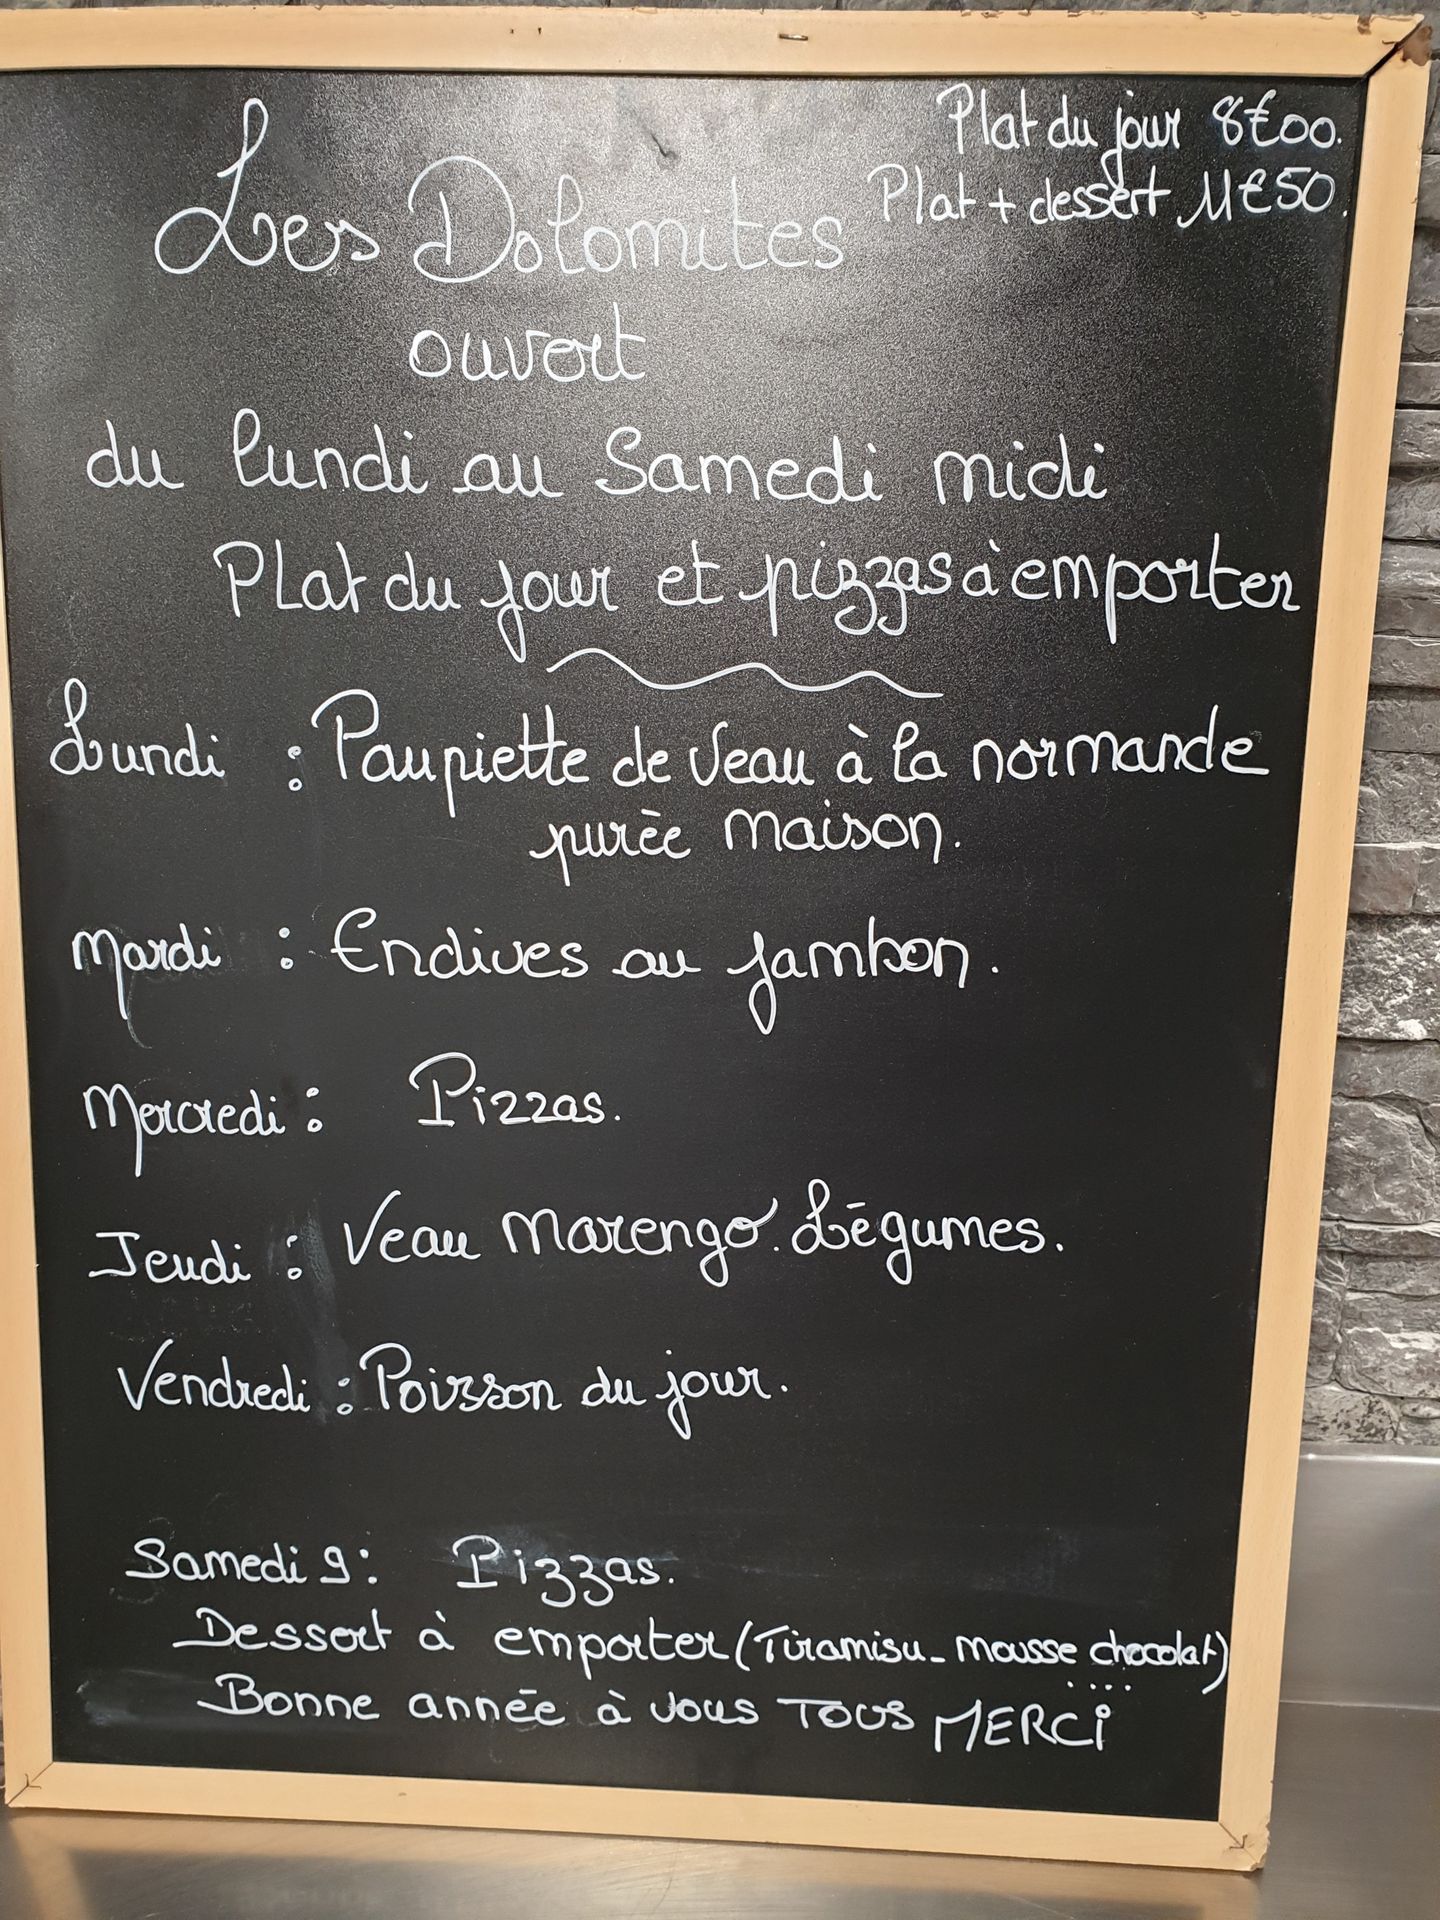 Plat du jour 8€00.
Plat + dessert 11€50.
Les Dolomites
ouvert
du lundi au Samedi midi
Plat du jour et pizzas à emporter
Lundi : Paupiette de veau à la normande
purèe maison.
Mardi : Endives au jambon.
Mercredi : Pizzas.
Jeudi : Veau Marengo. Légumes.
Vendredi : Poisson du jour.
Samedi 9 : Pizzas.
Dessert à emporter (Tiramisu - mousse chocolat)
....
Bonne année à vous TOUS MERCi